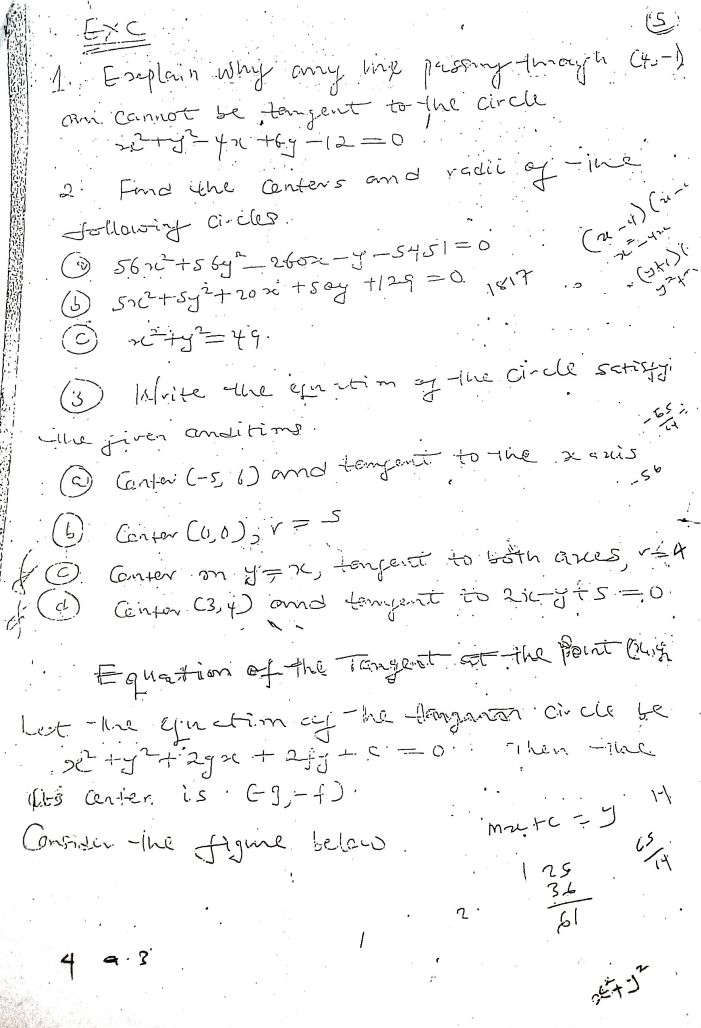 (5)
EXC
1. Explain why any line passing through (4,-1)
cannot be tangent to the circle
x²+y²-4x+6y-12=0
2. Find the centers and radii of the
following circles.
(a) 56x²+56y²-260x-y-5451=0
(x-4)(x-
(b) 5x²+5y²+20x+50y+129=0
1817
(y+1)(
(c) x²+y²=49.
(3) Write the equation of the circle satisfy
the given conditions.
(a) Center (-5, 6) and tangent to the x axis
-56
(b) Center (0,0), r = 5
(c) Center on y=x, tangent to both axes, r=4
(d) Center (3,4) and tangent to 2x-y+5=0.
Equation of the Tangent at the Point
Let the equation of the circle be
x²+y²+2gx+2fy+c=0. Then the
center is (-g,-f).
14
mx+c=y
Consider the figure below.
65/14
1 25
36
2. 61
4 a. 3
x²+y²